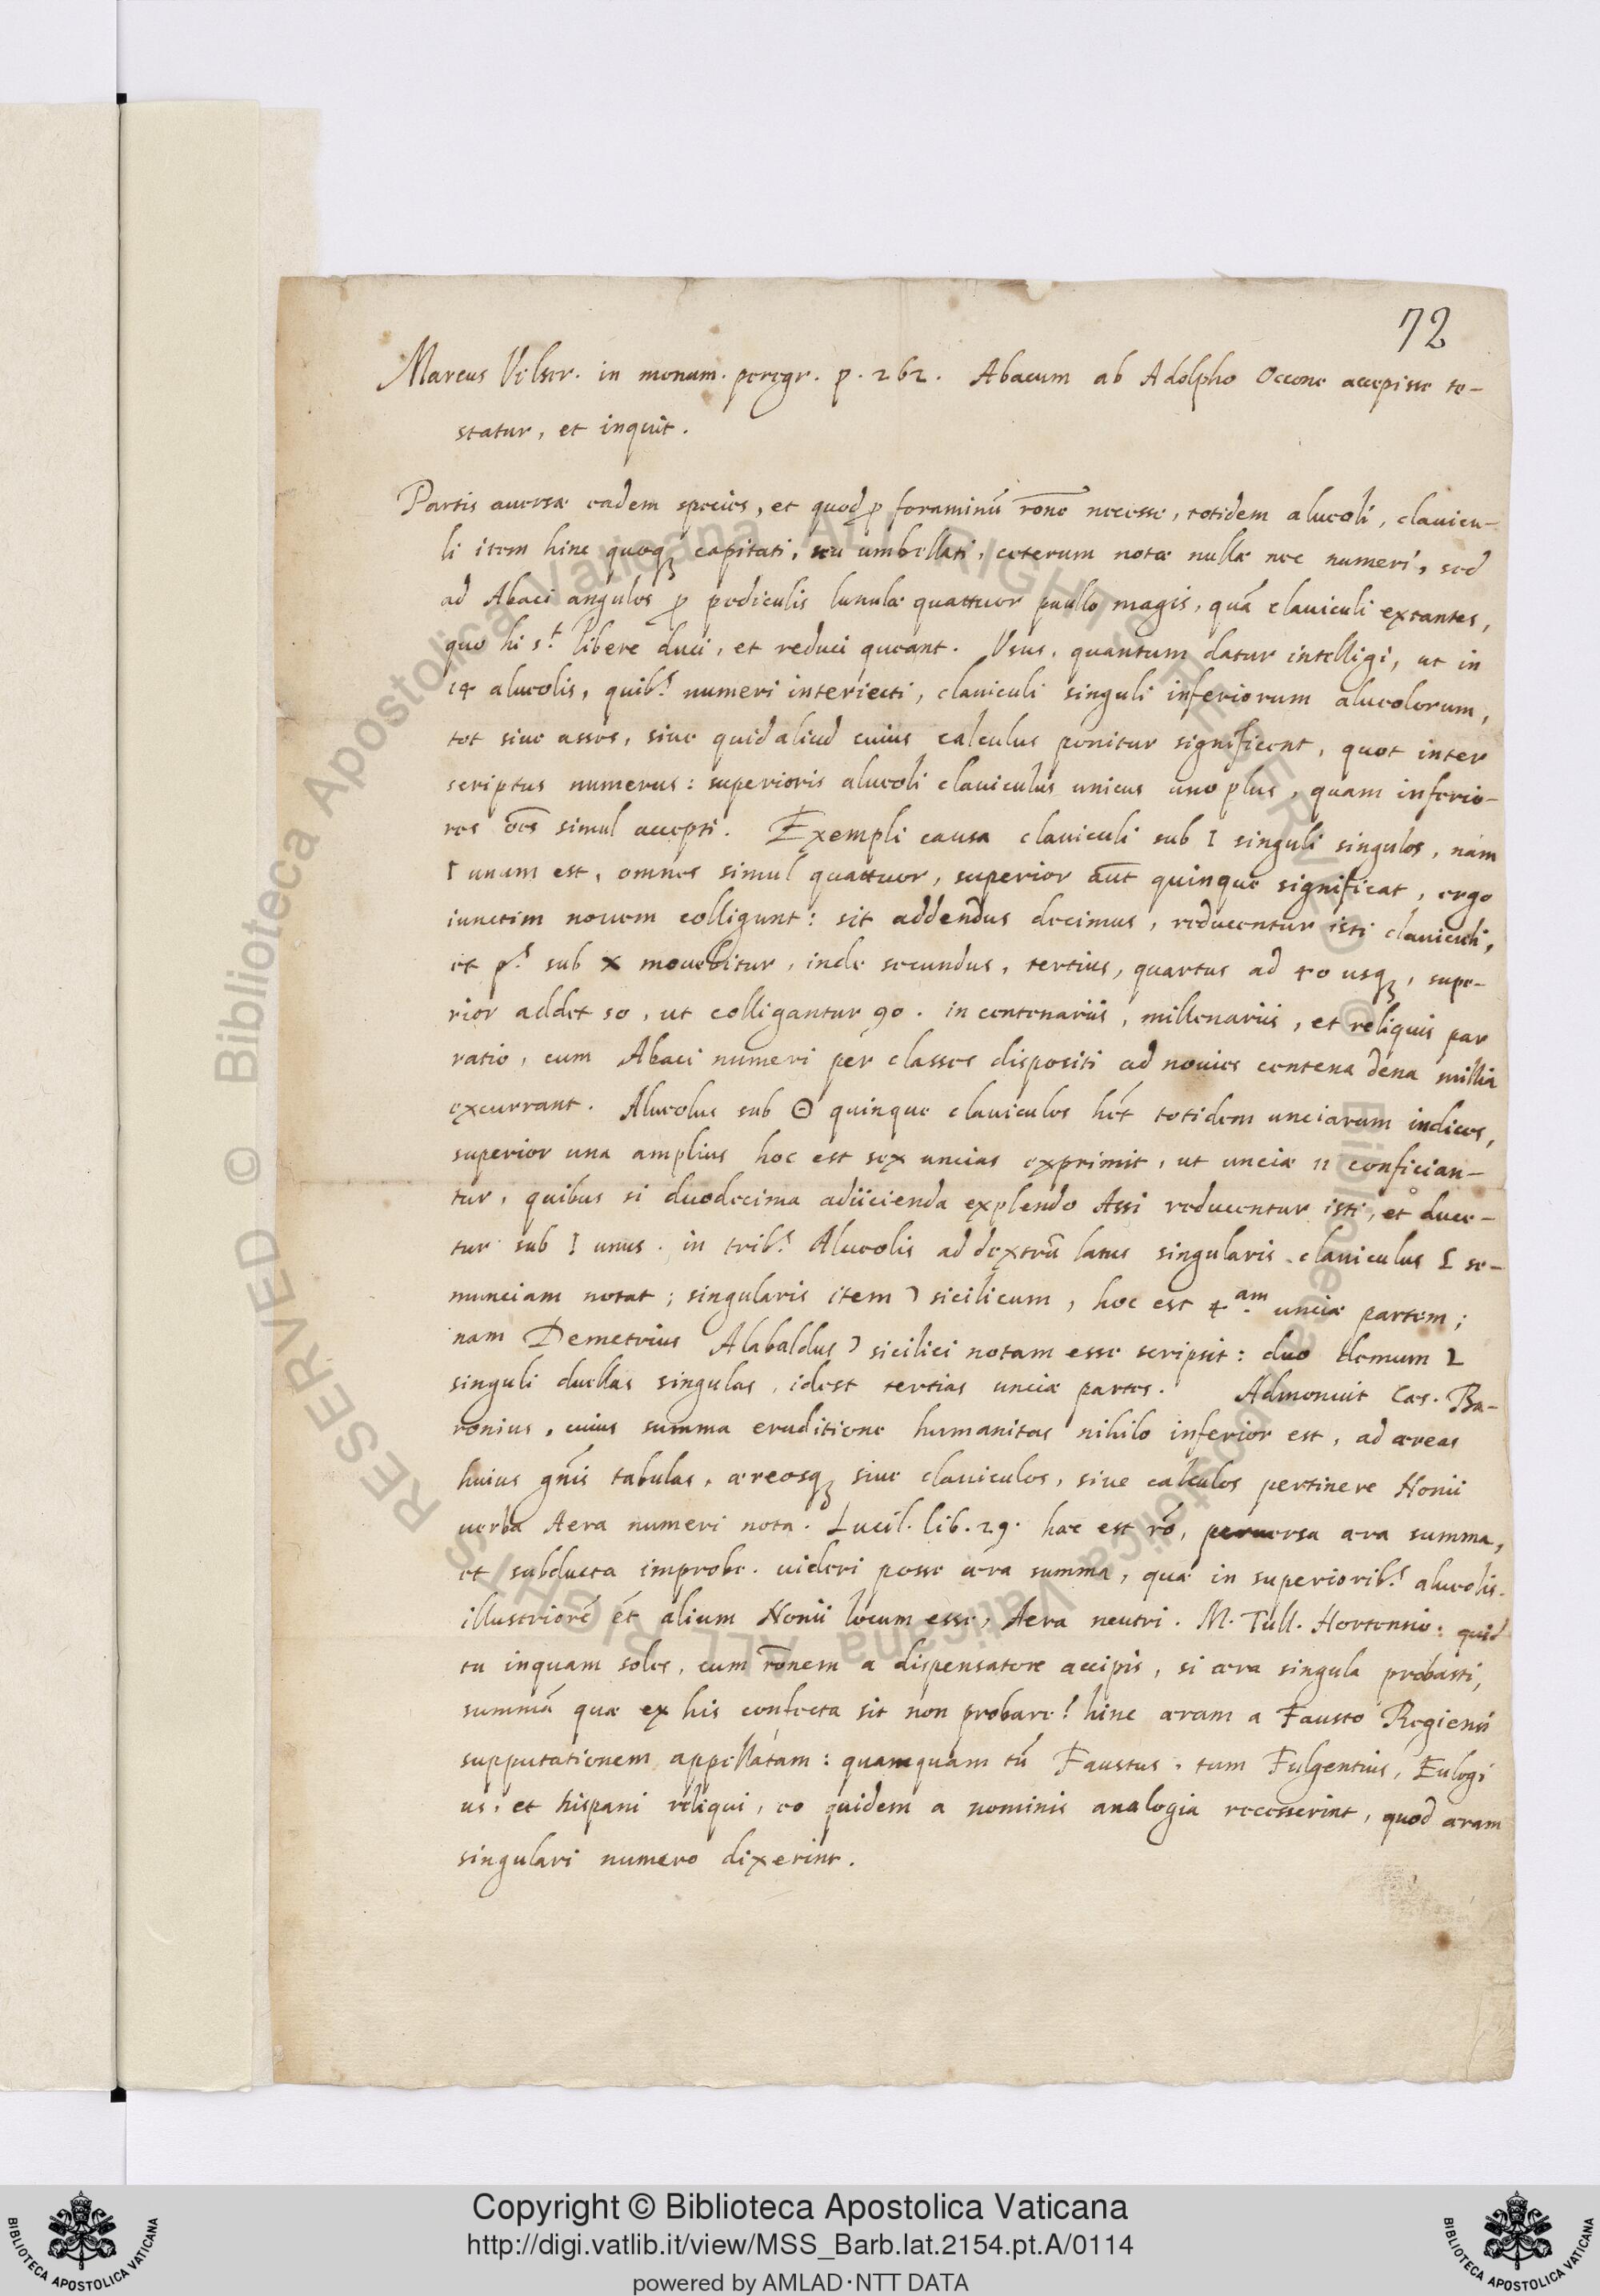 72
Marcus Velser. in monum. peregr. p. 262. Abacum ab Adolpho Occone accepisse te-
statur, et inquit.
Partis auersæ eadem species, et quod ꝑ foraminũ rõne necesse, totidem alueoli, clauicu-
li item hinc quoqꝫ capitati, seu umbellati, ceterum notæ nullæ nec numeri, sed
ad Abaci angulos ꝓ pediculis lunulæ quattuor paullo magis, quã clauiculi extantes,
quo hi s.t libere duci, et reduci queant. Vsus, quantum datur intelligi, ut in
14 alueolis, quib.s numeri interiecti, clauiculi singuli inferiorum alueolorum,
tot siue asses, siue quid aliud cuius calculus ponitur significent, quot inter
scriptus numerus: superioris alueoli clauiculus unicus uno plus, quam inferio-
res oẽs simul accepti. Exempli causa clauiculi sub I singuli singulos, nam
I unum est, omnes simul quattuor, superior aũt quinque significat, ergo
iunctim nouem colligunt: sit addendus decimus, reducentur isti clauiculi,
et p.s sub X mouebitur, inde secundus, tertius, quartus ad 40 usqꝫ, supe-
rior addet 50, ut colligantur 90. in centenariis, millenariis, et reliquis par
ratio, cum Abaci numeri per classes dispositi ad nouies centena dena millia
excurrant. Alueolus sub Θ quinque clauiculos hẽt totidem unciarum indices,
superior una amplius hoc est sex uncias exprimit, ut unciæ 11 confician-
tur, quibus si duodecima adiicienda explendo Assi reducentur isti, et duce-
tur sub I unus. in trib.s Alueolis ad dextrũ latus singularis clauiculus Ƨ se-
munciam notat; singularis item Ɔ sicilicum, hoc est 4.am unciæ partem;
nam Demetrius Alabaldus Ɔ sicilici notam esse scripsit: duo demum 2
singuli duellas singulas, idest tertias unciæ partes. Admonuit Cæs. Ba-
ronius, cuius summa eruditione humanitas nihilo inferior est, ad æreas
huius gñis tabulas, æreosqꝫ siue clauiculos, siue calculos pertinere Nonii
uerba Aera numeri nota. Lucil. lib. 29. hæc est rõ, peruersa æra summa,
et subducta improbe. uideri posse æra summa, quæ in superiorib.s alueolis.
illustriorẽ ẽt alium Nonii locum esse, Aera neutri. M. Tull. Hortensio: quid
tu inquam soles, cum rõnem a dispensatore accipis, si æra singula probasti,
summã quæ ex his confecta sit non probare? hinc æram a Fausto Regiensi
supputationem appellatam: quamquam tũ Faustus, tum Fulgentius, Eulogi
us, et hispani reliqui, eo quidem a nominis analogia recesserint, quod æram
singulari numero dixerint.
© Biblioteca Apostolica Vaticana ALL RIGHTS RESERVED
Copyright © Biblioteca Apostolica Vaticana
http://digi.vatlib.it/view/MSS_Barb.lat.2154.pt.A/0114
powered by AMLAD·NTT DATA
BIBLIOTECA APOSTOLICA VATICANA
BIBLIOTECA APOSTOLICA VATICANA